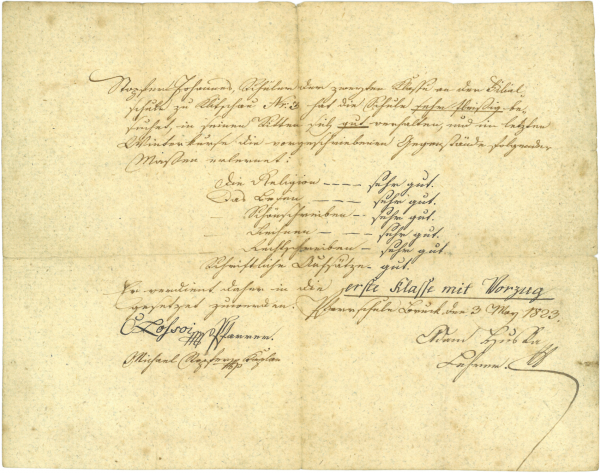 Stopfer Johannes, Schüler der zweyten Klasse an der Filial
schule zu Klitschau Nr. 3 hat die Schule sehr fleißig be-
suchet, in seinen Sitten sich gut verhalten, und im letzten
Winterkurse die vorgeschriebenen Gegenstände folgender
Massen erlernet:
Die Religion --- sehr gut.
Das Lesen --- sehr gut.
Schönschreiben - sehr gut.
Rechnen -- sehr gut.
Rechtschreiben - sehr gut.
Schriftliche Aufsätze - gut.
Er verdient daher in die erste Klasse mit Vorzug
gesetzet zu werden. Pfarrschule Bruck den 3 May 1823.
Pfarrer.
Adam
Michael Kaplan
Lehrer.